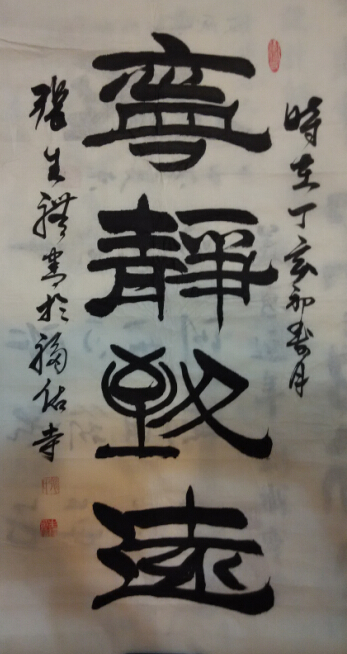 時在丁亥初春月
寧靜致遠
張生禮書於福佑寺